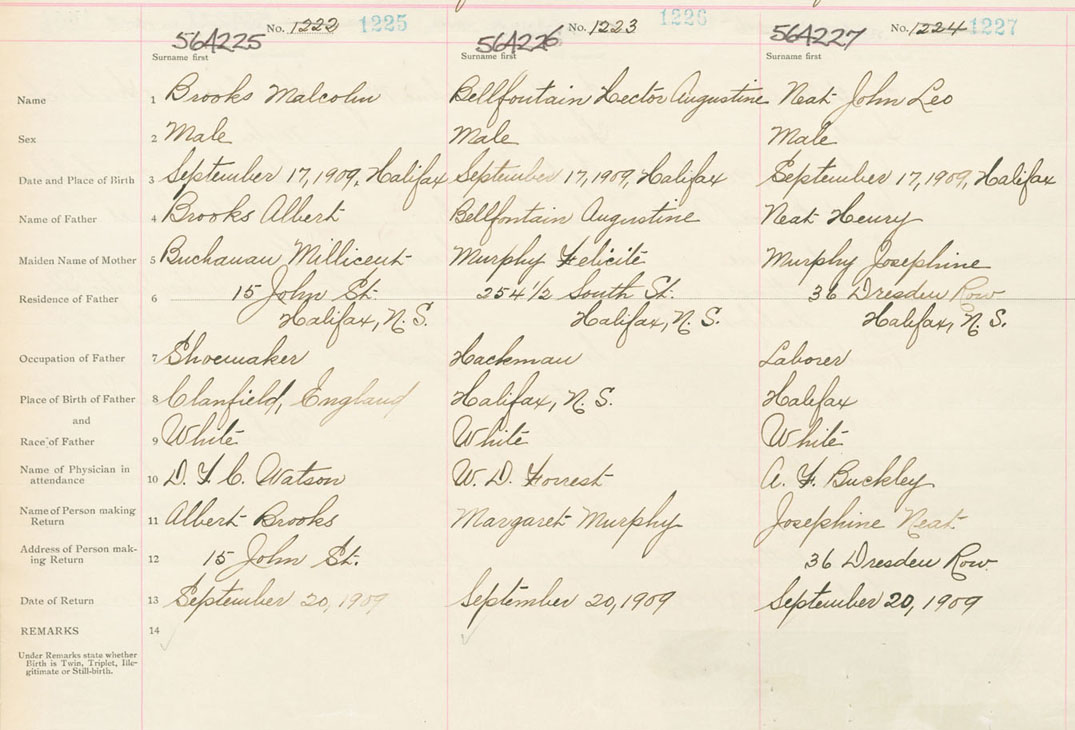 No. 1222 1225 No. 1223 1226 No. 1224 1227
564225 564226 564227
Surname first Surname first Surname first
Name 1 Brooks Malcolm Bellfountain Hector Augustine Neat John Leo
Sex 2 Male Male Male
Date and Place of Birth 3 September 17, 1909, Halifax September 17, 1909, Halifax September 17, 1909, Halifax
Name of Father 4 Brooks Albert Bellfontain Augustine Neat Henry
Maiden Name of Mother 5 Buchanan Millicent Murphy Felicite Murphy Josephine
Residence of Father 6 15 John St. 254 1/2 South St. 36 Dresden Row
Halifax, N.S. Halifax, N.S. Halifax, N.S.
Occupation of Father 7 Shoemaker Hackman Laborer
Place of Birth of Father 8 Clanfield, England Halifax, N.S. Halifax
and
Race of Father 9 White White White
Name of Physician in
attendance 10 D. F. C. Watson W. D. Forrest A. F. Buckley
Name of Person making
Return 11 Albert Brooks Margaret Murphy Josephine Neat
Address of Person mak-
ing Return 12 15 John St. 36 Dresden Row
Date of Return 13 September 20, 1909 September 20, 1909 September 20, 1909
REMARKS 14
Under Remarks state whether
Birth is Twin, Triplet, Ille-
gitimate or Still-birth.